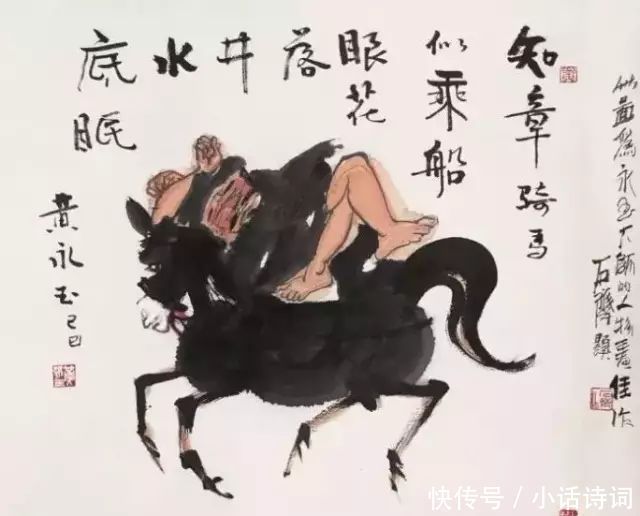 知章骑马
似乘船
眼花
落
井
水
底眠
黄永玉 己巳
此画為永玉大师的人物画佳作
快传号 / 小话诗词